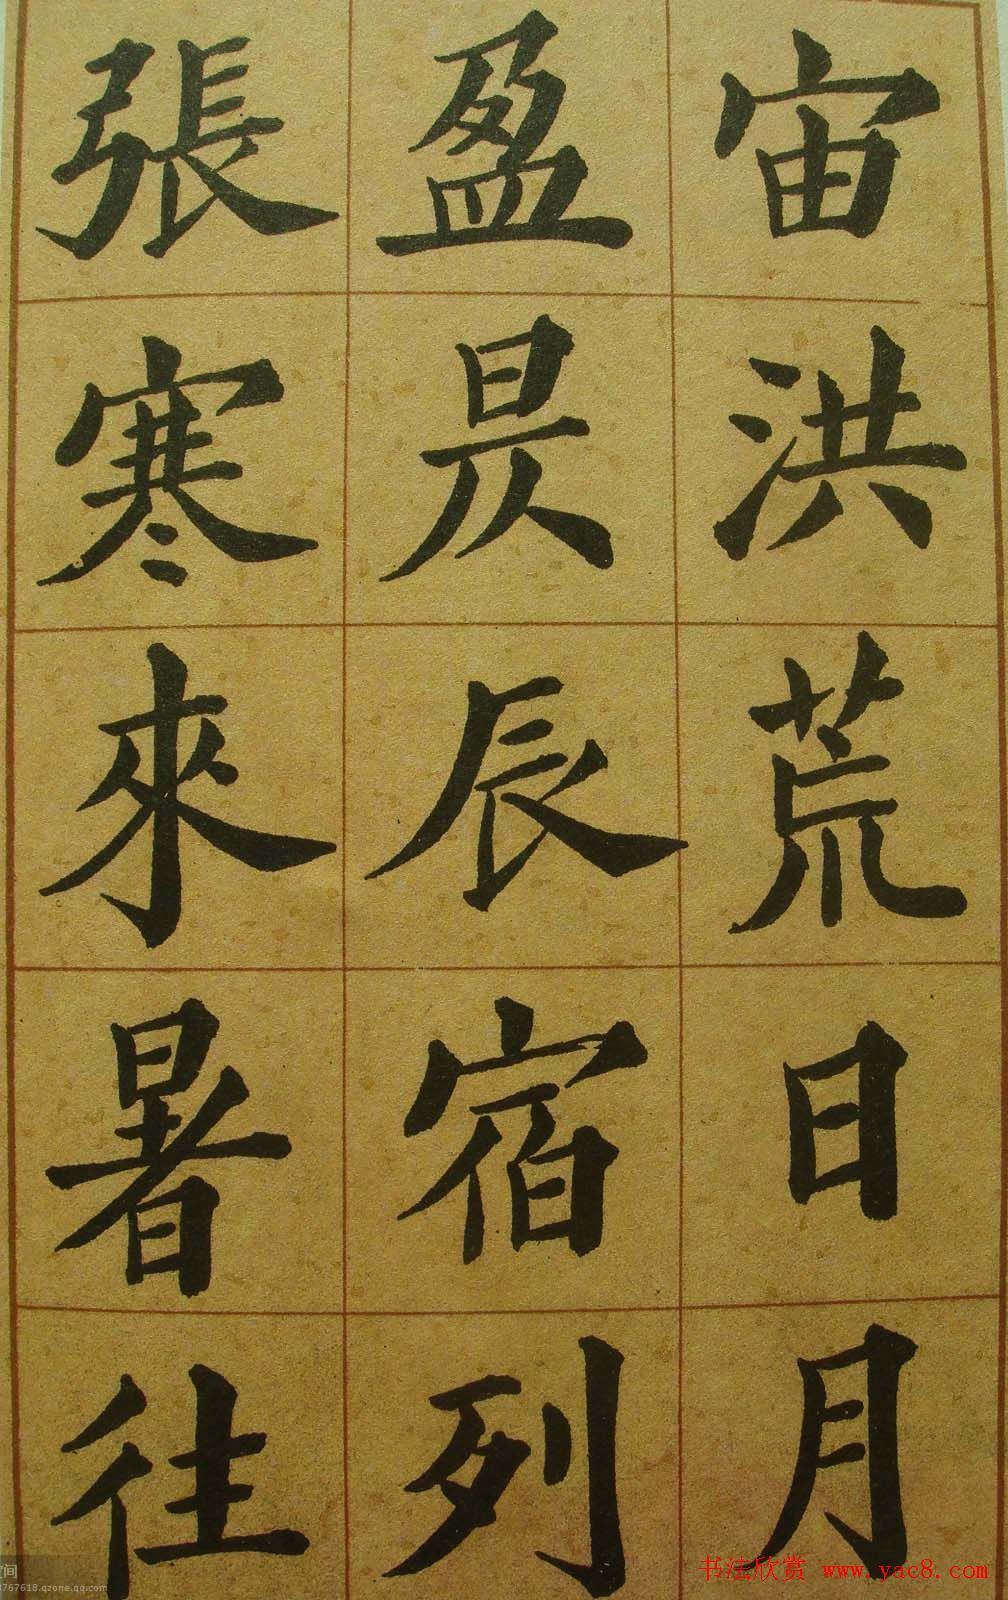 宙洪荒日月
盈昃辰宿列
張寒來暑往
书法欣赏 www.yac8.com
间
3767618.qzone.qq.com